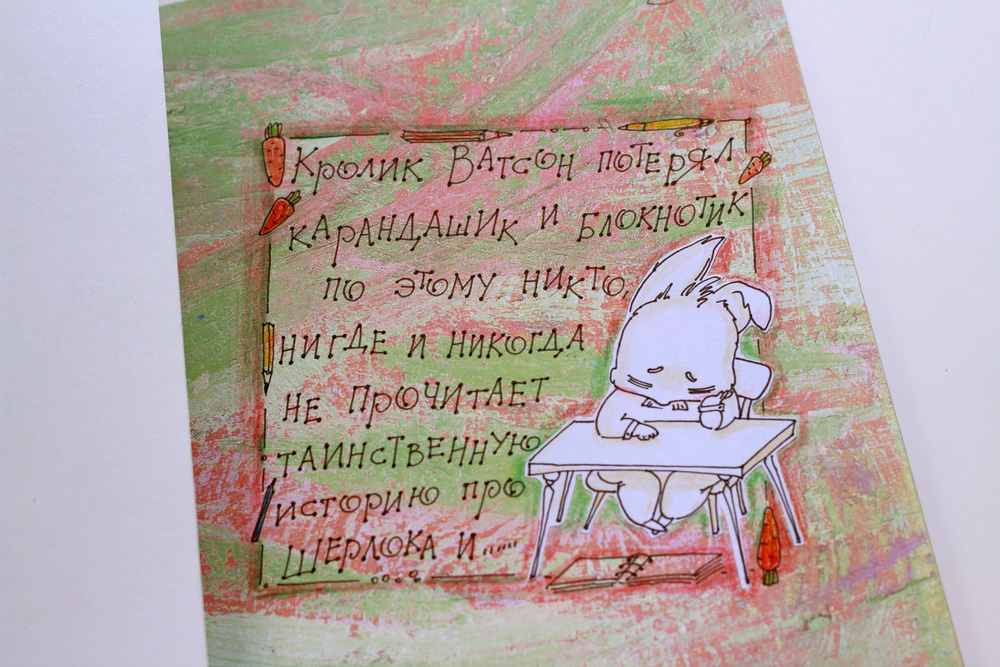 Кролик Ватсон потерял
карандашик и блокнотик
по этому никто,
нигде и никогда
не прочитает
таинственную
историю про
Шерлока и......